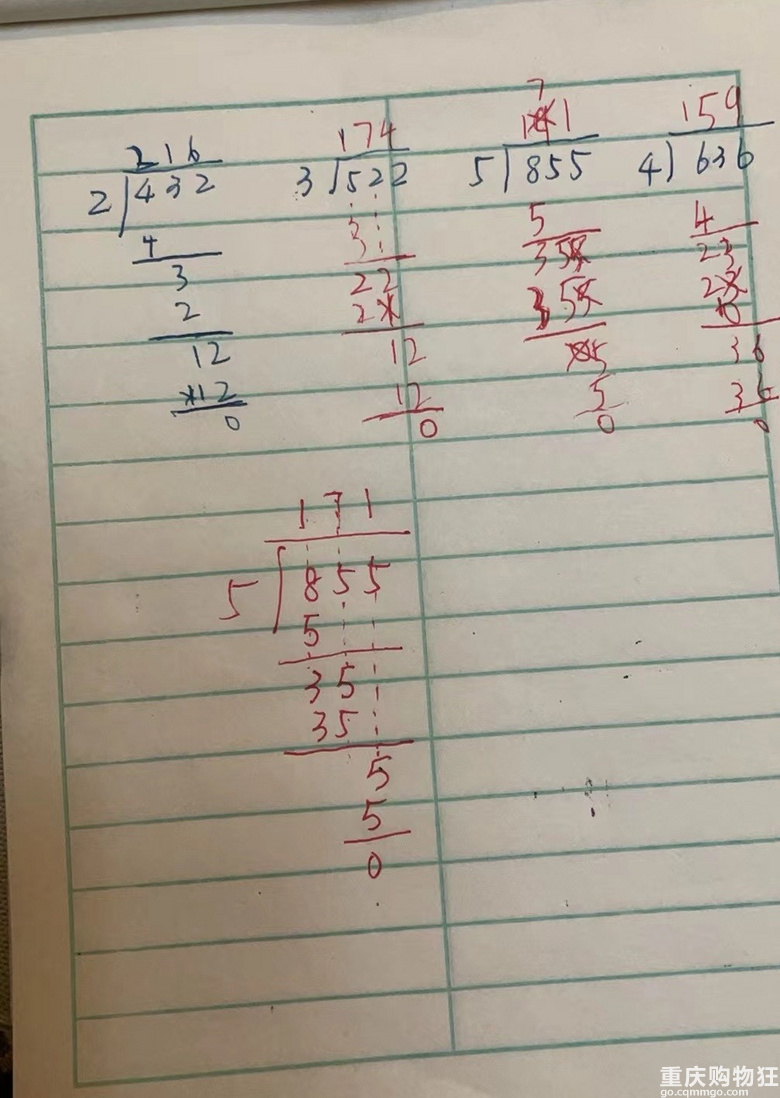 216 174 7 159
2 432 3 522 1 1 5 855 4 636
4 3 5 4
3 22 35 23
2 2 35 2
12 12 5 36
12 12 5 36
0 0 0 0
171
5 855
5
35
35
5
5
0
重庆购物狂
go.cqmmgo.com